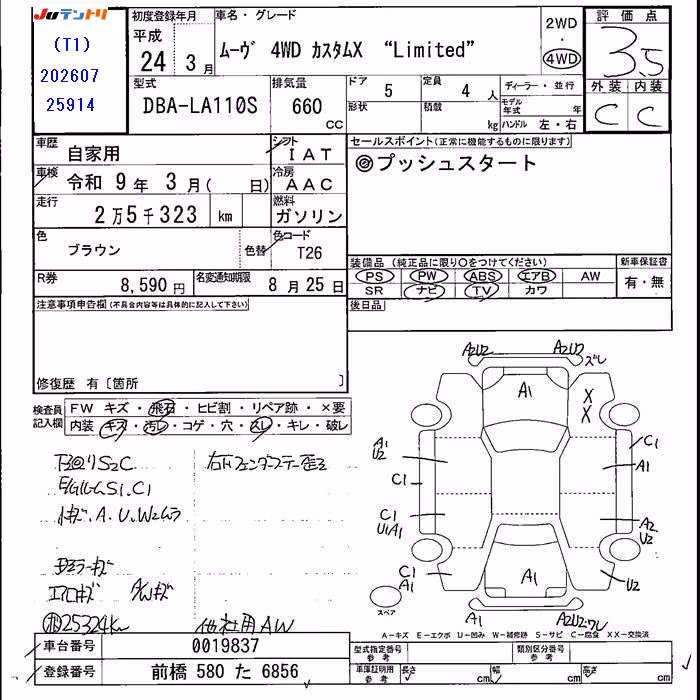 Juテントリ
(T1)
202607
25914
初度登録年月
平成
24 3月
車名・グレード
ムーヴ 4WD カスタムX "Limited"
2WD
・
4WD
評価点
3.5
外装 内装
C C
型式
DBA-LA110S
排気量
660
CC
ドア
5
形状
定員
4人
積載
kg
ディーラー・並行
モデル年式 年
ハンドル 左・右
車歴
自家用
シフト
IAT
車検
令和 9年 3月( 日)
冷房
AAC
走行
2万5千323 km
燃料
ガソリン
色
ブラウン
色替
色コード
T26
R券
8,590円
名変通知期限
8月25日
セールスポイント(正常に機能するものに限ります)
◎プッシュスタート
装備品(純正品に限り○をつけてください)
PS PW ABS エアB AW
SR ナビ TV カワ
新車保証書
有・無
後日品
注意事項申告欄(不具合内容等は具体的に記入して下さい)
修復歴 有〔箇所 〕
検査員記入欄
FW キズ・飛石・ヒビ割・リペア跡・×要
内装 キズ・汚レ・コゲ・穴・スレ・キレ・破レ
下回りS2C
E/GルームS1.C1
小キズ.A.U.W2ムラ
エアロキズ
25324km
右Fフェンダーステー歪ミ
他社用AW
A2U2
A2U2
ズレ
A1
X
X
A1
U2
C1
C1
U1A1
C1
A1
C1
A1
A2
U2
U2
A1
A1
A2U2.ワレ
スペア
A-キズ E-エクボ U-凹み W-補修跡 S-サビ C-腐食 XX-交換済
車台番号
0019837
登録番号
前橋 580 た 6856
型式指定番号
参考
類別区分番号
参考
車庫証明用
参考
長さ cm
幅 cm
高さ cm